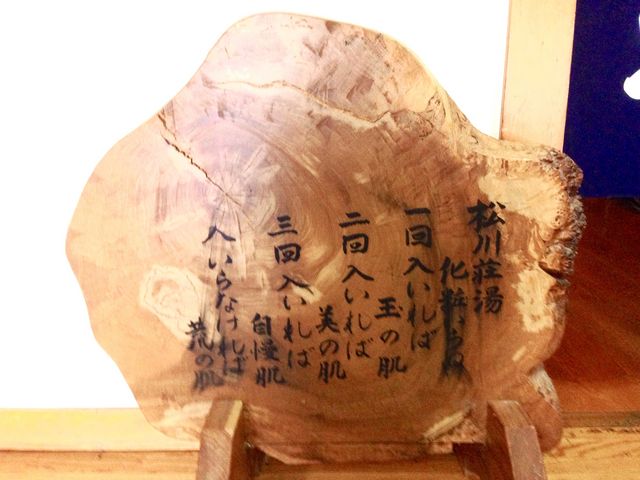 松川荘湯
化粧いらぬ
一回入いれば
玉の肌
二回入いれば
美の肌
三回入いれば
自慢肌
入いらなければ
荒の肌